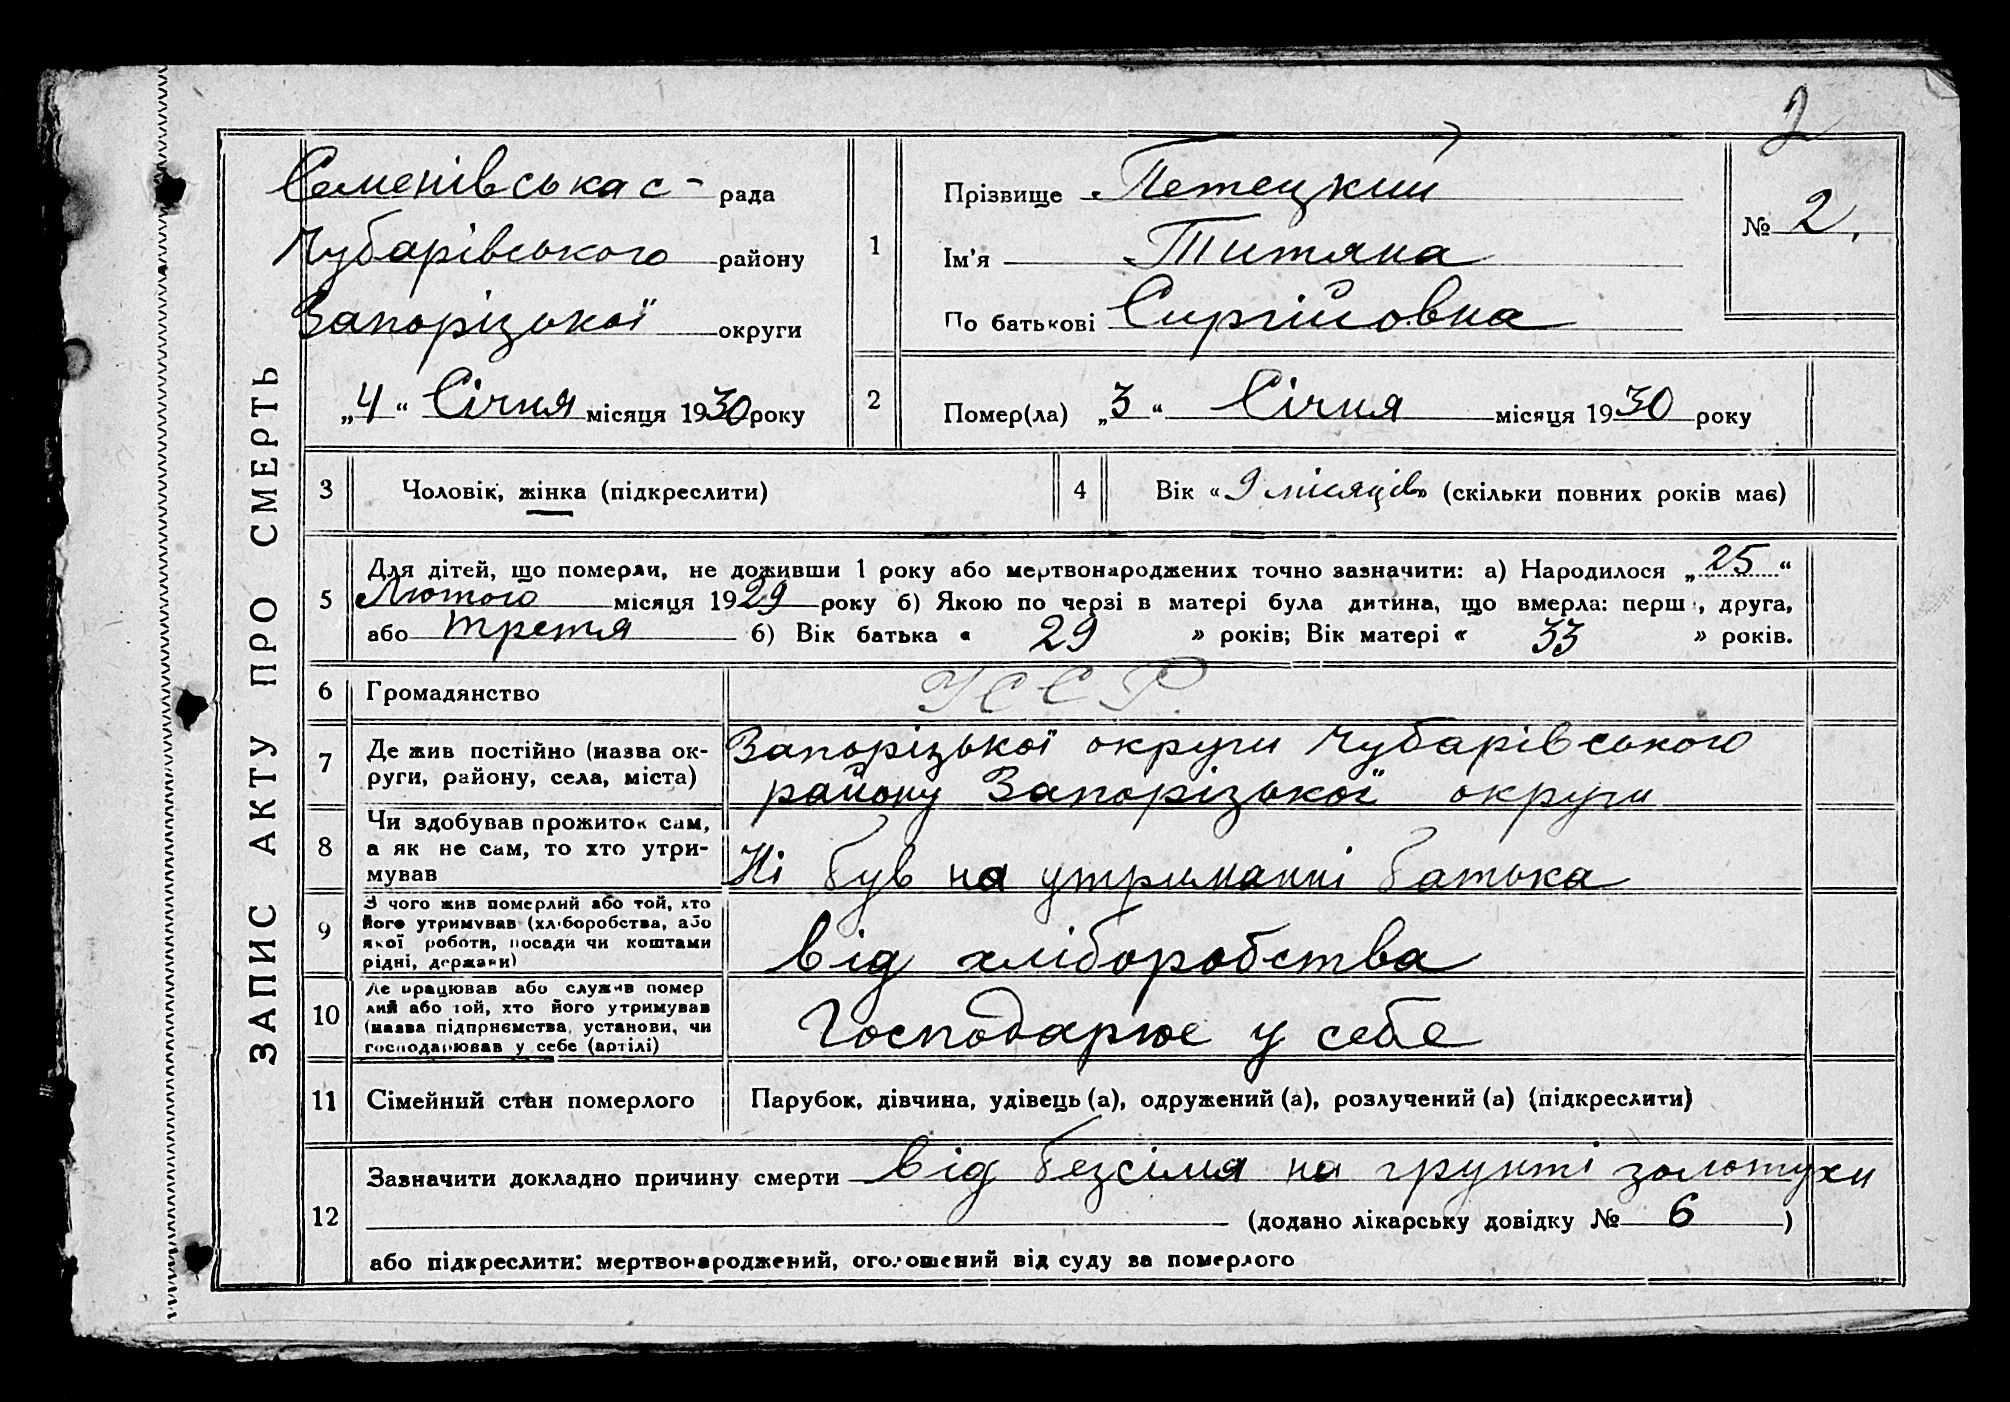 2
ЗАПИС АКТУ ПРО СМЕРТЬ
Семенівська с- рада
Чубарівського району
Запоріцької округи
„4“ Січня місяця 1930 року
1
Прізвище Петецкий
Ім'я Титяна
По батькові Сиргійовна
№ 2.
2
Помер(ла) „3“ Січня місяця 1930 року
3 Чоловік, жінка (підкреслити)
4 Вік «9 місяців» (скільки повних років має)
5 Для дітей, що померли, не доживши 1 року або мертвонароджених точно зазначити: а) Народилося „25“
Лютого місяця 1929 року б) Якою по черзі в матері була дитина, що вмерла: перша, друга,
або третя б) Вік батька « 29 » років; Вік матері « 33 » років.
6 Громадянство УССР.
7 Де жив постійно (назва ок-
руги, району, села, міста)
Запоріцької округи Чубарівського
району Запорізької округи
8 Чи здобував прожиток сам,
а як не сам, то хто утри-
мував
Ні був на утриманні батька
9 З чого жив померлий або той, хто
його утримував (хліборобства, або
якої роботи, посади чи коштами
рідні, держави)
від хліборобства
10 Де працював або служив помер
лий або той, хто його утримував
(назва підприємства, установи, чи
господарював у себе (артілі)
Господарює у себе
11 Сімейний стан померлого Парубок, дівчина, удівець (а), одружений (а), розлучений (а) (підкреслити)
12 Зазначити докладно причину смерти від безсіля на грунті золотухи
(додано лікарську довідку № 6 )
або підкреслити: мертвонароджений, оголошений від суду за померлого